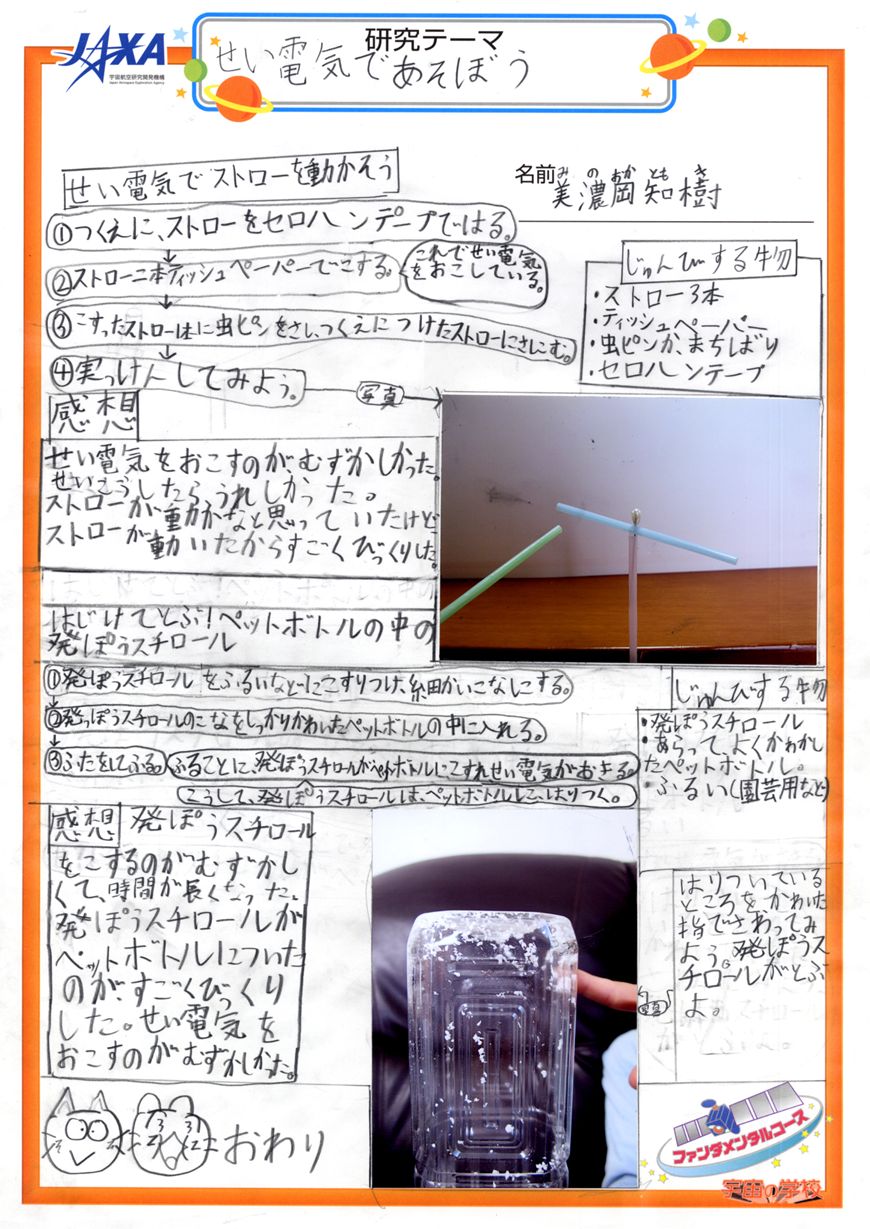 JAXA
宇宙航空研究開発機構
Japan Aerospace Exploration Agency
研究テーマ
せい電気であそぼう
名前
みのおかともき
美濃岡知樹
せい電気でストローを動かそう
①つくえに、ストローをセロハンテープではる。
↓
②ストロー二本ティッシュペーパーでこする。
これでせい電気
をおこしている。
↓
③こすったストロー1本に虫ピンをさし、つくえにつけたストローにさしこむ。
↓
④実っけんしてみよう。
写真
じゅんびする物
・ストロー3本
・ティッシュペーパー
・虫ピンか、まちばり
・セロハンテープ
感想
せい電気をおこすのが、むずかしかった。
せいこうしたら、うれしかった。
ストローが動かなと思っていたけど
ストローが動いたからすごくびっくりした。
はじけてとぶ!ペットボトルの中の
発ぽうスチロール
①発ぽうスチロールをふるいなどにこすりつけ、細かいこなにする。
↓
②発っぽうスチロールのこなをしっかりかわいたペットボトルの中に入れる。
↓
③ふたをしてふる。
ふるごとに、発ぽうスチロールがペットボトルにこすれせい電気がおきる。
こうして、発ぽうスチロールは、ペットボトルに、はりつく。
じゅんびする物
・発ぽうスチロール
・あらって、よくかわかし
たペットボトル。
・ふるい(園芸用など)
感想
発ぽうスチロール
をこするのがむずかし
くて、時間が長くなった。
発ぽうスチロールが
ペットボトルについた
のが、すごくびっくり
した。せい電気を
おこすのがむずかしかった。
はりついている
ところをかわいた
指でさわってみ
よう。発ぽうス
チロールがとぶ
よ。
写真
おわり
ファンダメンタルコース
宇宙の学校